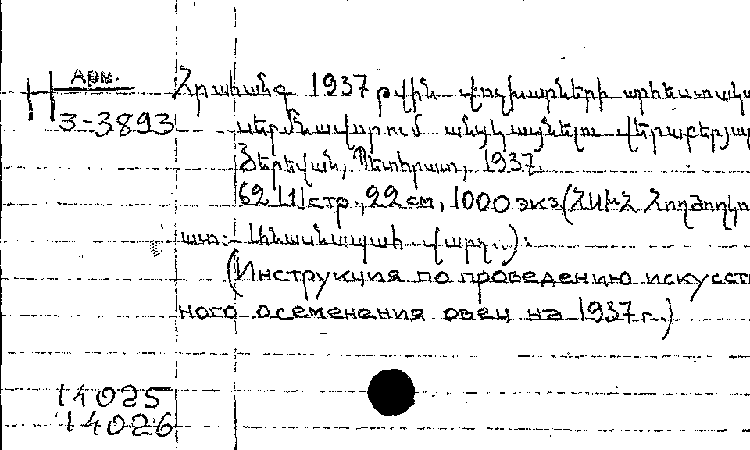 Арм.
З-3893
Հրահանգ 1937 թվին ոչխարների արհեստակա
սերմնավորում անցկացնելու վերաբերյալ
Յերեվան, Պետհրատ, 1937.
62 |1| стр., 22 см, 1000 экз (ՀՍԽՀ Հողժողկո
ատ: Անասնապահ վարչ..):
(Инструкция по проведению искусст
ного осеменения овец на 1937 г.)
14025
14026